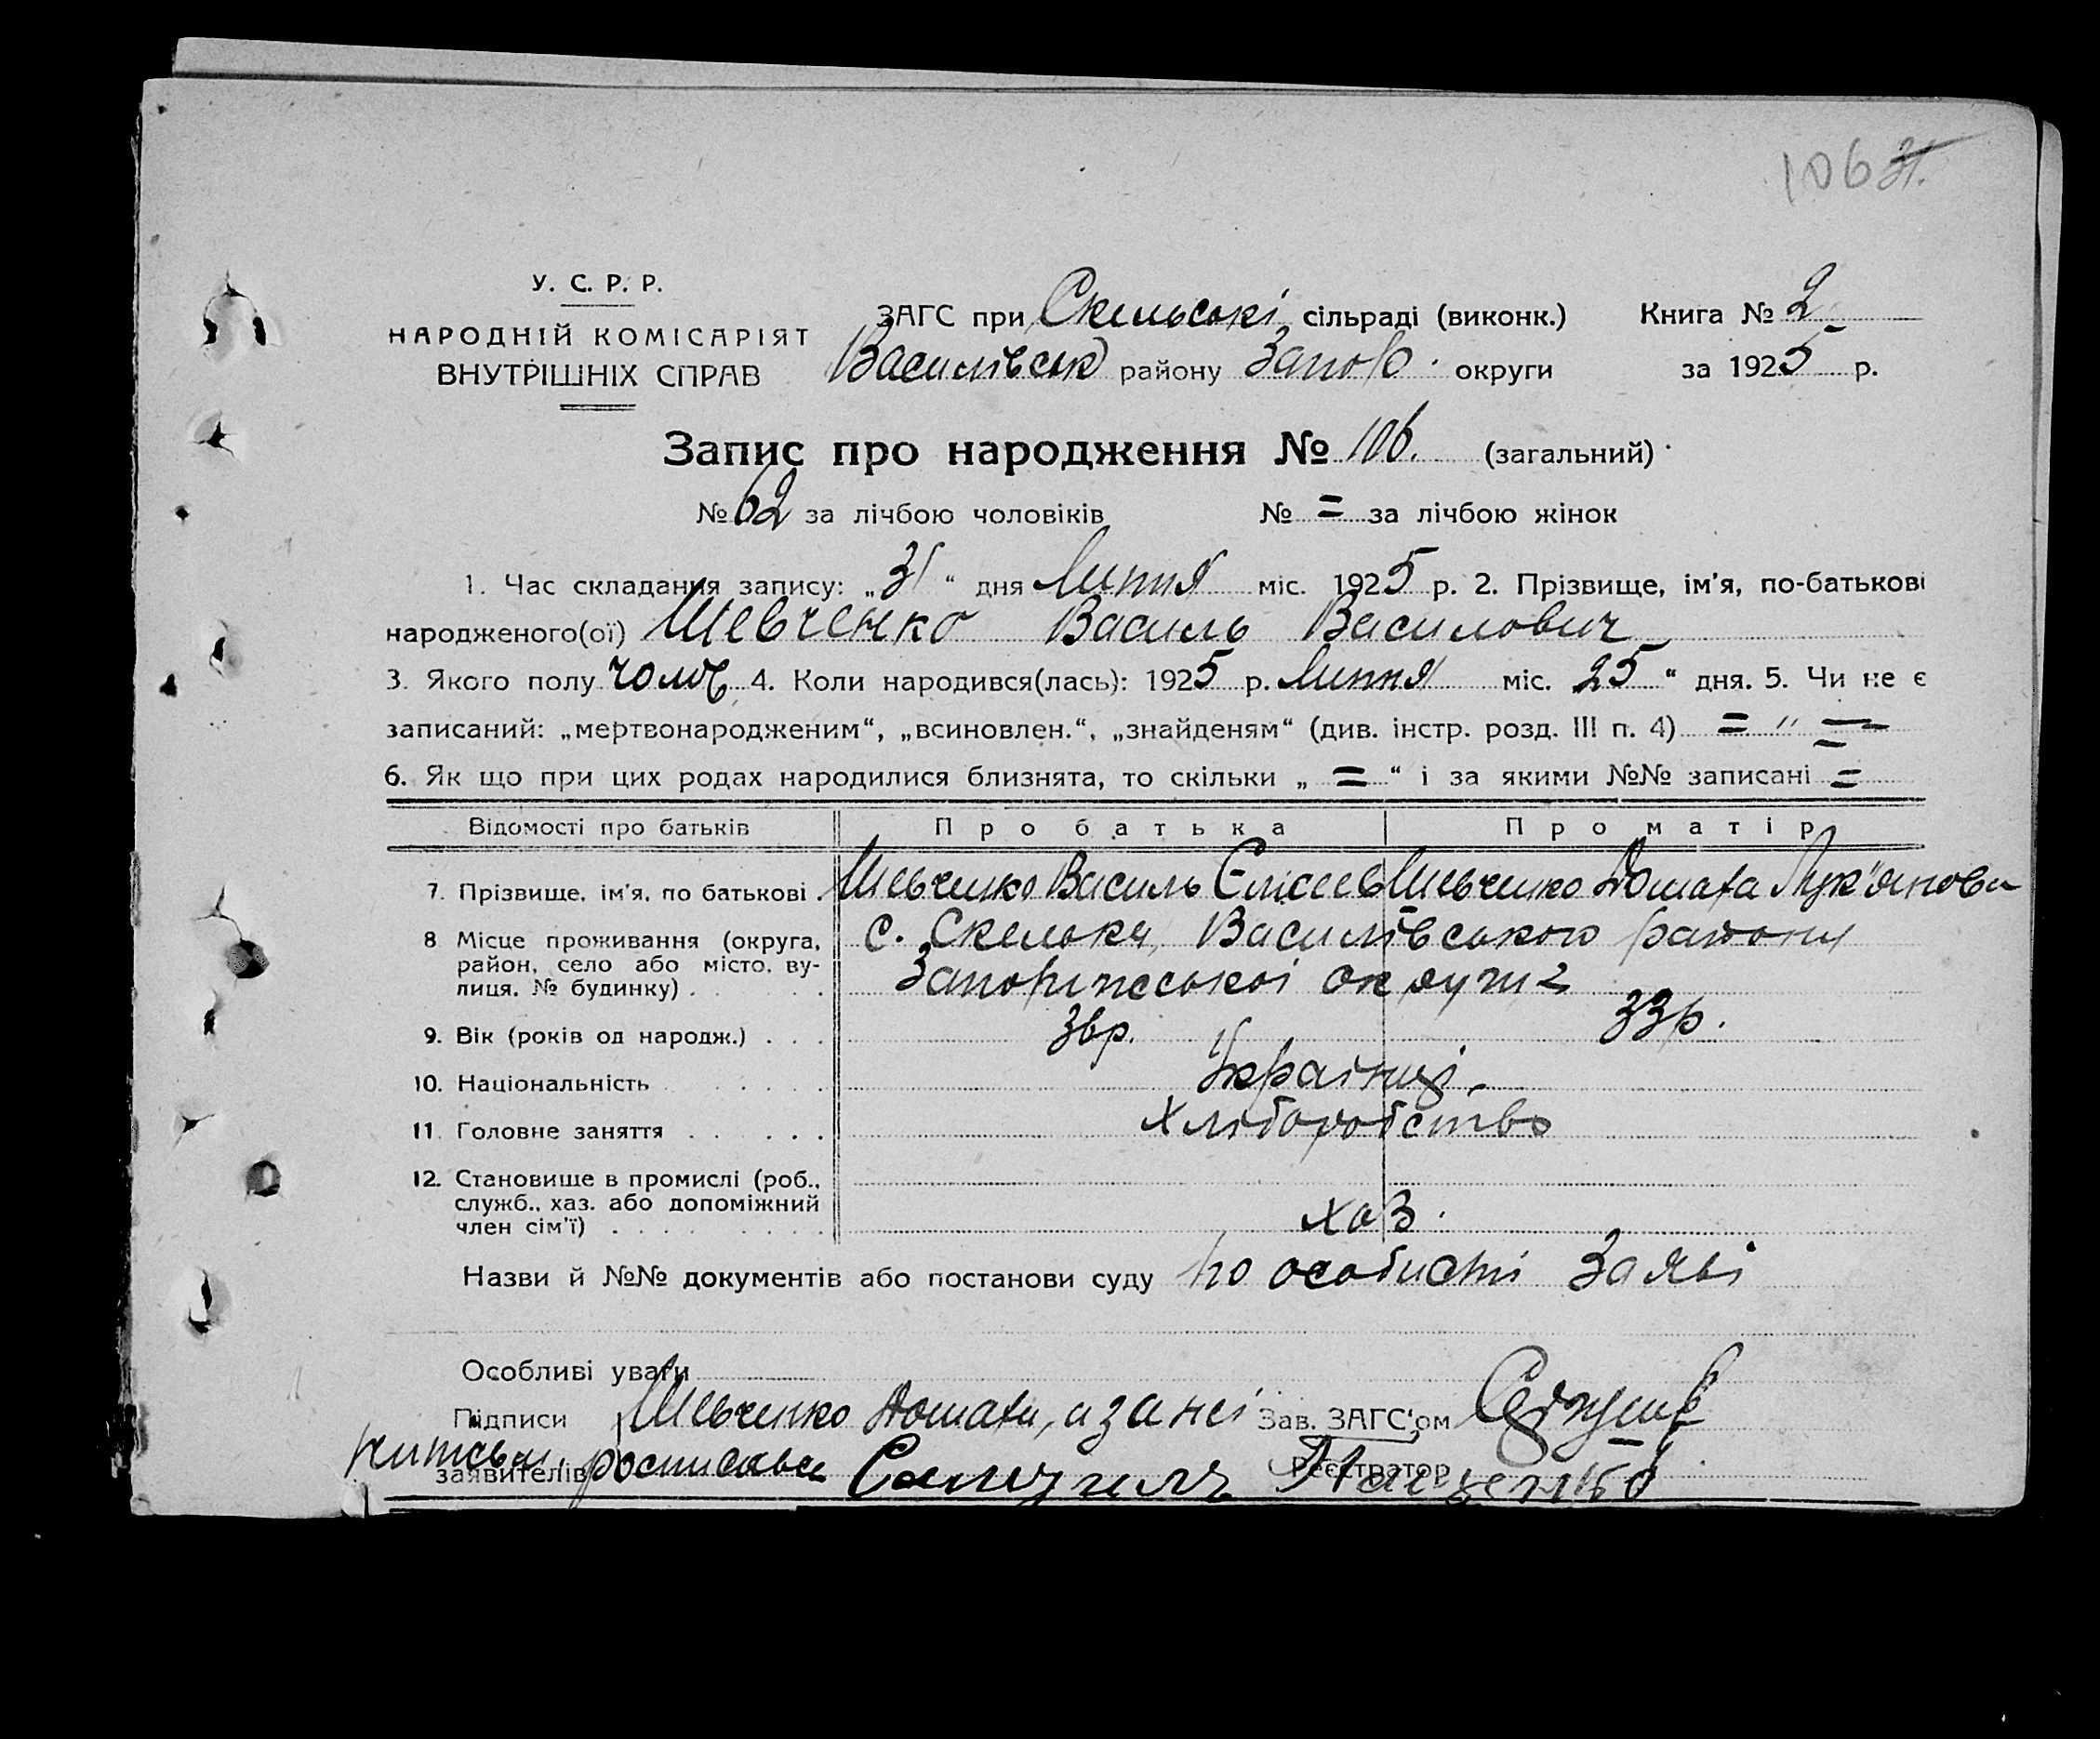 106 31.
У. С. Р. Р.
НАРОДНІЙ КОМІСАРІЯТ
ВНУТРІШНІХ СПРАВ
ЗАГС при Скельські сільраді (виконк.) Книга № 2
Василівськ району Запор. округи за 1925 р.
Запис про народження № 106. (загальний)
№ 62 за лічбою чоловіків № = за лічбою жінок
1. Час складання запису: „31“ дня Липня міс. 1925 р. 2. Прізвище, ім'я, по-батькові
народженого(ої) Шевченко Василь Василович
3. Якого полу чолов. 4. Коли народився(лась): 1925 р. Липня міс. 25 “ дня. 5. Чи не є
записаний: „мертвонародженим“, „всиновлен.“, „знайденям“ (див. інстр. розд. III п. 4) = " =
6. Як що при цих родах народилися близнята, то скільки „ = “ і за якими №№ записані =
Відомості про батьків Про батька Про матір
7. Прізвище, ім'я, по батькові . Шевченко Василь Єлісеєв Шевченко Домаха Лук'янова
8 Місце проживання (округа, с. Скельки, Василівського району
район, село або місто, ву- Запоріжської округи
лиця, № будинку) .
9. Вік (років од народж.) . . . 36р. 33р.
10. Національність Українці
11. Головне заняття . . . . . Хліборобство
12. Становище в промислі (роб.,
служб., хаз. або допоміжний
член сім'ї) . хаз.
Назви й №№ документів або постанови суду по особисті заяві
Особливі уваги
Підписи Шевченко Домаха, а за неї Зав. ЗАГС'ом
заявителів Реєстратор